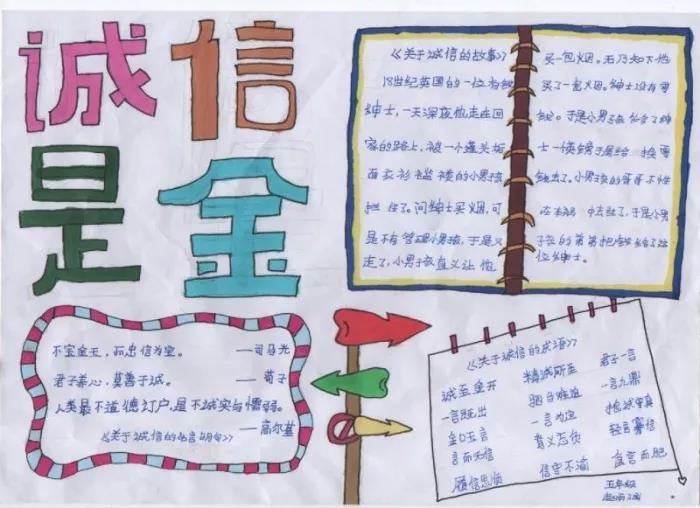 诚信
是金
《关于诚信的故事》
18世纪英国的一位
绅士，一天深夜他走在回
家的路上，被一个蓬头垢
面衣衫褴褛的小男孩
拦住了。问绅士买烟，可
是不有管理小男孩，于是又
走了，小男孩直义让他
买一包烟。无乃知下他
买了一包火烟。绅士没有零
钱。于是小男孩
士一英镑于是给 换零
钱去了。小男孩的哥哥不性
中去世了，于是小男
孩的弟弟把 给了这
位绅士。
不宝金玉，而忠信为宝。
——司马光
君子养心，莫善于诚。 ——荀子
人类最不道德 户，是不诚实与懦弱。
——高尔基
《关于诚信的名言明句》
《关于诚信的成语》
诚至金开 精诚所至 君子一言
一言既出 一言九鼎
金口玉言 一言为定
言而无信 轻言寡信
履信思顺 信守不渝 食言而肥
五年级